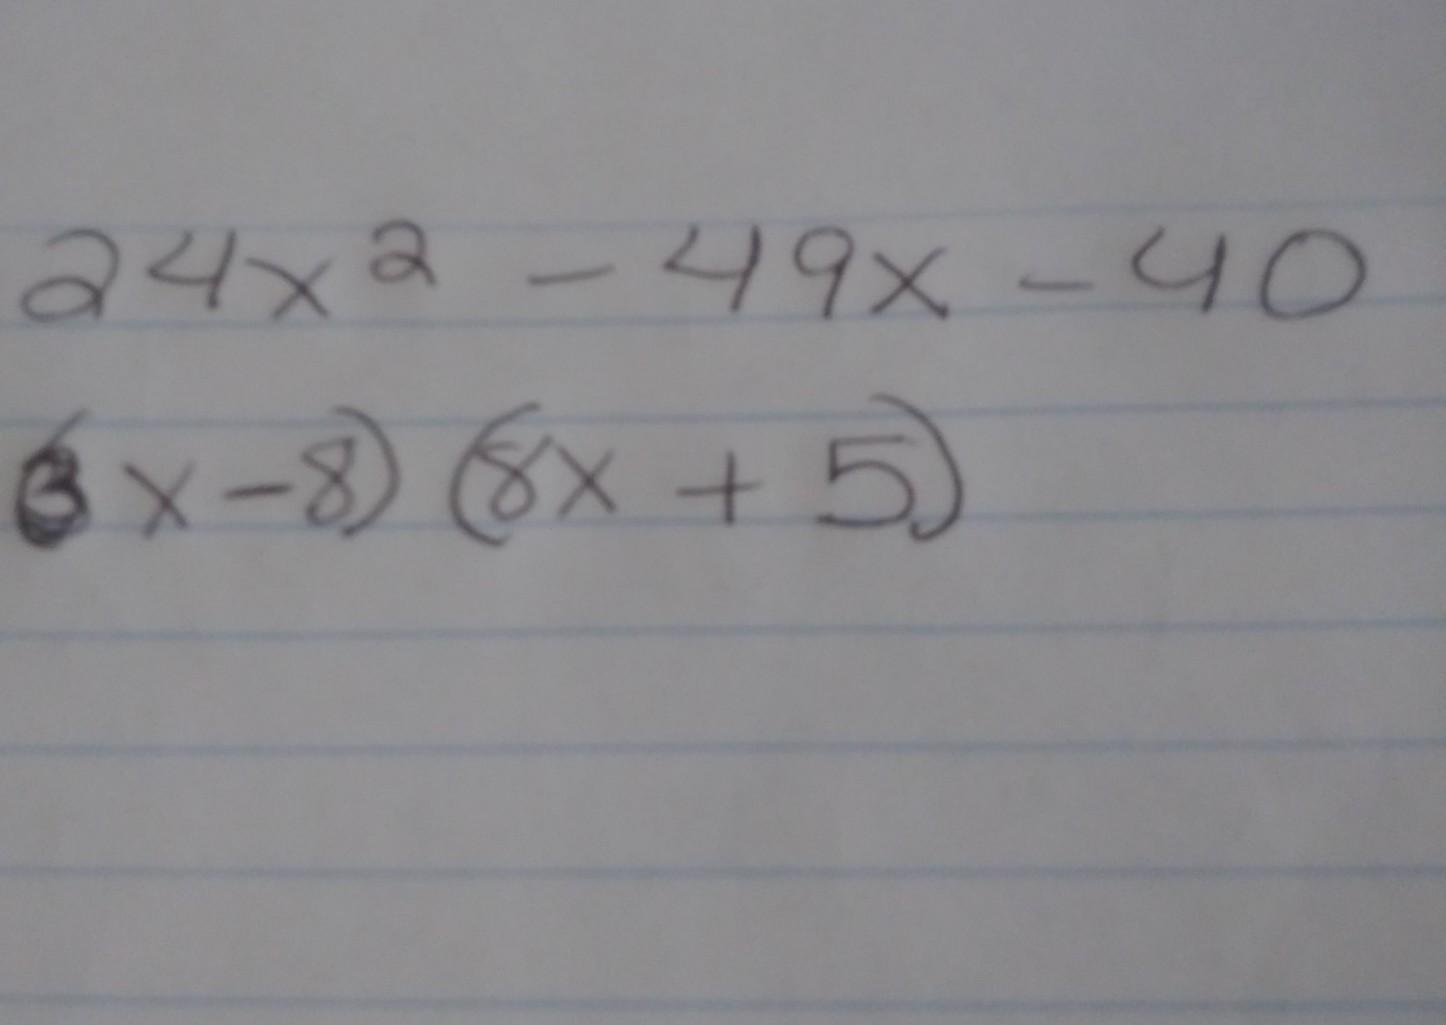 24x² - 49x - 40
(3x - 8) (8x + 5)